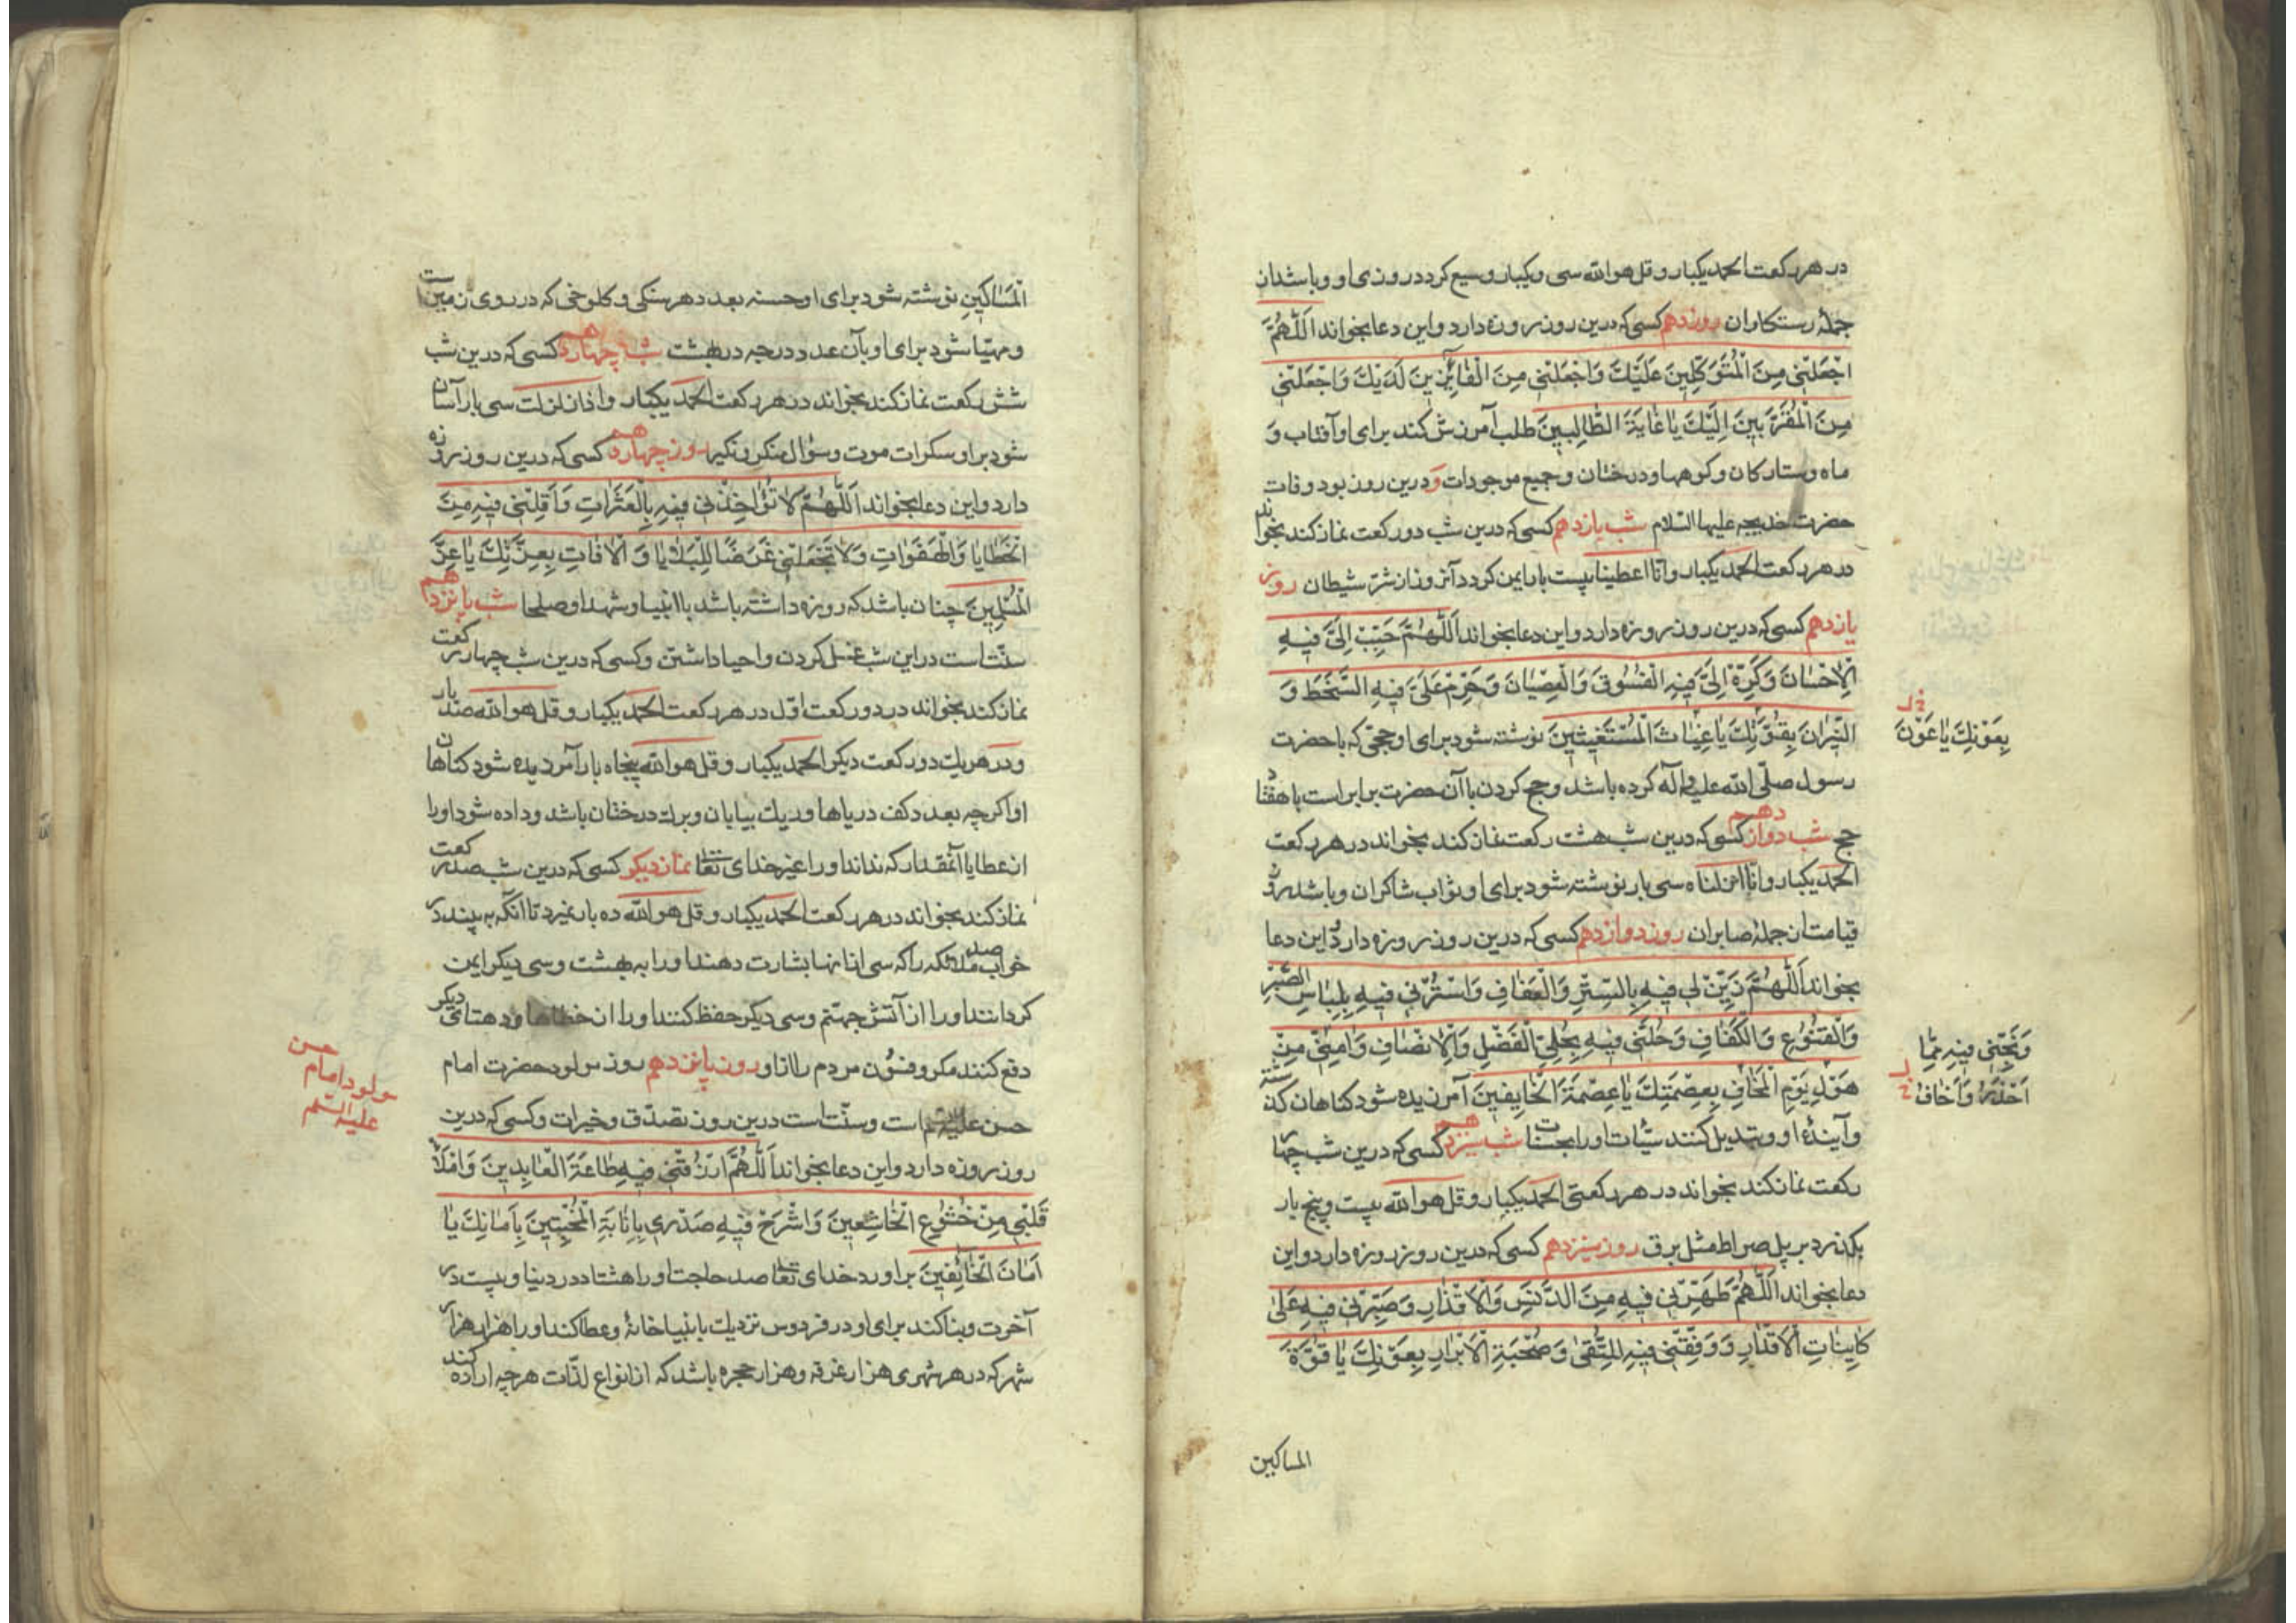 در هر رکعت الحمد یکبار و قل هو الله سی و یکبار وسیع گردد روزی او و باشد از
جملهٔ رستکاران روز دهم کسی که درین روز روزه دارد و این دعا بخواند اَللّٰهُمَّ
اجْعَلْنِی مِنَ الْمُتَوَکِّلِینَ عَلَیْكَ وَاجْعَلْنِی مِنَ الْفَائِزِینَ لَدَیْكَ وَاجْعَلْنِی
مِنَ الْمُقَرَّبِینَ اِلَیْكَ یَا غَایَةَ الطَّالِبِینَ طلب آمرزش کند برای او آفتاب و
ماه و ستارکان و کوهها و درختان و جمیع موجودات وَ درین روز بود وفات
حضرت خدیجه علیها السلام شب یازدهم کسی که درین شب دو رکعت نماز کند بخواند
در هر رکعت الحمد یکبار و انا اعطیناک بیست بار ایمن کردد آنروز از شرّ شیطان روز
یازدهم کسی که درین روز روزه دارد و این دعا بخواند اَللّٰهُمَّ حَبِّبْ اِلَیَّ فِیهِ
الْاِحْسَانَ وَکَرِّهْ اِلَیَّ فِیهِ الْفُسُوقَ وَالْعِصْیَانَ وَحَرِّمْ عَلَیَّ فِیهِ السَّخَطَ وَ
النِّیرَانَ بِقُوَّتِكَ یَا غِیَاثَ الْمُسْتَغِیثِینَ نوشته شود برای او حجّی که با حضرت
بِعَوْنِكَ یَا عَوْنَ
رسول صلّی الله علیه وآله کرده باشد و حج کردن با آن حضرت برابر است با هفتاد
حج شب دوازدهم کسی که درین شب هشت رکعت نماز کند بخواند در هر رکعت
الحمد یکبار و انّا انزلناه سی بار نوشته شود برای او ثواب شاکران و باشد روز
قیامت از جملهٔ صابران روز دوازدهم کسی که درین روز روزه دارد و این دعا
بخواند اَللّٰهُمَّ زَیِّنِّی فِیهِ بِالسِّتْرِ وَالْعَفَافِ وَاسْتُرْنِی فِیهِ بِلِبَاسِ الصَّبْرِ
وَالْقُنُوعِ وَالْکَفَافِ وَحَلِّنِی فِیهِ بِحُلِیِّ الْفَضْلِ وَالْاِنْصَافِ وَاٰمِنِّی مِنْ
وَنَجِّنِی فِیهِ مِمَّا
هَوْلِ یَوْمِ الْمَخَافِ بِعِصْمَتِكَ یَا عِصْمَةَ الْخَایِفِینَ آمرزیده شود کناهان کذشته
اَحْذَرُ وَاَخَافُ
و آیندهٔ او و تبدیل کنند سیّئات او را بحسنات شب سیزدهم کسی که درین شب چهار
رکعت نماز کند بخواند در هر رکعتی الحمد یکبار و قل هو الله بیست و پنج بار
بکذرد بر پل صراط مثل برق روز سیزدهم کسی که درین روز روزه دارد و این
دعا بخواند اَللّٰهُمَّ طَهِّرْنِی فِیهِ مِنَ الدَّنَسِ وَالْاَقْذَارِ وَصَبِّرْنِی فِیهِ عَلٰی
کَایِنَاتِ الْاَقْدَارِ وَوَفِّقْنِی فِیهِ لِلتُّقٰی وَصُحْبَةِ الْاَبْرَارِ بِعَوْنِكَ یَا قُوَّةَ
المساکین
الْمَسَاکِینِ نوشته شود برای او حسنه بعدد هر سنکی و کلوخی که در روی زمین است
و مهیّا شود برای او بآن عدد درجه در بهشت شب چهاردهم کسی که درین شب
شش رکعت نماز کند بخواند در هر رکعت الحمد یکبار و اذا زلزلت سی بار آسان
شود بر او سکرات موت و سؤال منکر و نکیر روز چهاردهم کسی که درین روز روزه
دارد و این دعا بخواند اَللّٰهُمَّ لَا تُؤَاخِذْنِی فِیهِ بِالْعَثَرَاتِ وَاَقِلْنِی فِیهِ مِنَ
الْخَطَایَا وَالْهَفَوَاتِ وَلَا تَجْعَلْنِی غَرَضًا لِلْبَلَایَا وَ الْاٰفَاتِ بِعِزَّتِكَ یَا عِزَّ
الْمُسْلِمِینَ چنان باشد که روزه داشته باشد با انبیا و شهدا و صلحا شب پانزدهم
سنّت است در این شب غسل کردن و احیا داشتن و کسی که درین شب چهار رکعت
نماز کند بخواند در دو رکعت اوّل در هر رکعت الحمد یکبار و قل هو الله صد بار
و در هر یك دو رکعت دیکر الحمد یکبار و قل هو الله پنجاه بار آمرزیده شود کناهان
او اکرچه بعدد کف دریاها و ریك بیابان و برك درختان باشد و داده شود او را
از عطایا آنمقدار که نداند او را غیر خدای تعالی نماز دیکر کسی که درین شب صد رکعت
نماز کند بخواند در هر رکعت الحمد یکبار و قل هو الله ده بار نمیرد تا آنکه ببیند در
خواب صد ملائکه را که سی از انها بشارت دهند او را به بهشت و سی دیکر ایمن
کردانند او را از آتش جهنّم و سی دیکر حفظ کنند او را از خطاها و ده تای دیکر
دفع کنند مکر و فنون مردم را از او روز پانزدهم روز مولود حضرت امام
مولود امام حسن
علیه السّلم
حسن علیه السلام است و سنّت است درین روز تصدّق و خیرات و کسی که درین
روز روزه دارد و این دعا بخواند اَللّٰهُمَّ ارْزُقْنِی فِیهِ طَاعَةَ الْعَابِدِینَ وَامْلَأْ
قَلْبِی مِنْ خُشُوعِ الْخَاشِعِینَ وَاشْرَحْ فِیهِ صَدْرِی بِاِنَابَةِ الْمُخْبِتِینَ بِاَمَانِكَ یَا
اَمَانَ الْخَائِفِینَ براورد خدای تعالی صد حاجت او را هشتاد در دنیا و بیست در
آخرت و بنا کند برای او در فردوس نزدیك بانبیا خانهٔ و عطا کند او را هزار هزار
شهر که در هر شهری هزار غرفه و هزار حجره باشد که از انواع لذّات هرچه اراده کند